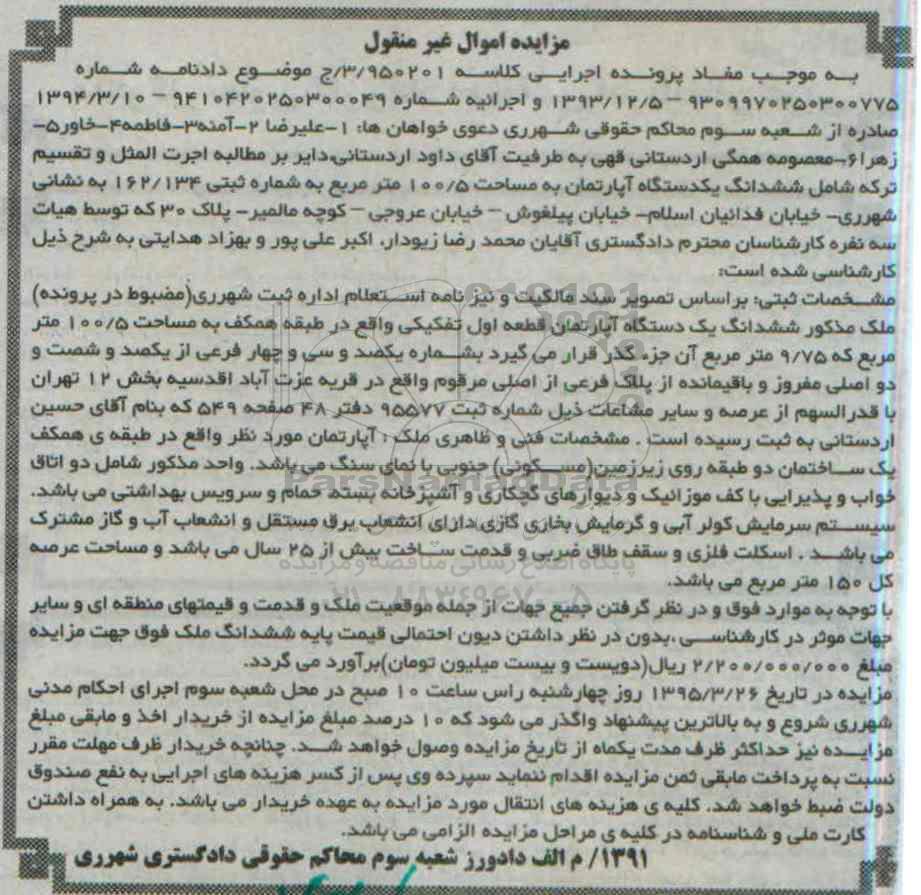 مزایده اموال غیر منقول
به موجب مفاد پرونده اجرایی کلاسه ۳/۹۵۰۲۰۱/ج موضوع دادنامه شماره
۹۳۰۹۹۷۰۲۵۰۳۰۰۷۷۵ – ۱۳۹۳/۱۲/۵ و اجرائیه شماره ۹۴۱۰۴۲۰۲۵۰۳۰۰۰۴۹ – ۱۳۹۴/۳/۱۰
صادره از شعبه سوم محاکم حقوقی شهرری دعوی خواهان ها: ۱-علیرضا ۲-آمنه۳-فاطمه۴-خاور۵-
زهرا۶-معصومه همگی اردستانی قهی به طرفیت آقای داود اردستانی،دایر بر مطالبه اجرت المثل و تقسیم
ترکه شامل ششدانگ یکدستگاه آپارتمان به مساحت ۱۰۰/۵ متر مربع به شماره ثبتی ۱۶۲/۱۳۴ به نشانی
شهرری- خیابان فدائیان اسلام- خیابان پیلغوش – خیابان عروجی – کوچه مالمیر- پلاک ۳۰ که توسط هیات
سه نفره کارشناسان محترم دادگستری آقایان محمد رضا زیودار، اکبر علی پور و بهزاد هدایتی به شرح ذیل
کارشناسی شده است:
مشخصات ثبتی: براساس تصویر سند مالکیت و نیز نامه استعلام اداره ثبت شهرری(مضبوط در پرونده)
ملک مذکور ششدانگ یک دستگاه آپارتمان قطعه اول تفکیکی واقع در طبقه همکف به مساحت ۱۰۰/۵ متر
مربع که ۹/۷۵ متر مربع آن جزء گذر قرار می گیرد بشماره یکصد و سی و چهار فرعی از یکصد و شصت و
دو اصلی مفروز و باقیمانده از پلاک فرعی از اصلی مرقوم واقع در قریه عزت آباد اقدسیه بخش ۱۲ تهران
با قدرالسهم از عرصه و سایر مشاعات ذیل شماره ثبت ۹۵۵۷۷ دفتر ۴۸ صفحه ۵۴۹ که بنام آقای حسین
اردستانی به ثبت رسیده است . مشخصات فنی و ظاهری ملک : آپارتمان مورد نظر واقع در طبقه ی همکف
یک ساختمان دو طبقه روی زیرزمین(مسکونی) جنوبی با نمای سنگ می باشد. واحد مذکور شامل دو اتاق
خواب و پذیرایی با کف موزائیک و دیوارهای گچکاری و آشپزخانه بسته، حمام و سرویس بهداشتی می باشد.
سیستم سرمایش کولر آبی و گرمایش بخاری گازی،دارای انشعاب برق مستقل و انشعاب آب و گاز مشترک
می باشد . اسکلت فلزی و سقف طاق ضربی و قدمت ساخت بیش از ۲۵ سال می باشد و مساحت عرصه
کل ۱۵۰ متر مربع می باشد.
با توجه به موارد فوق و در نظر گرفتن جمیع جهات از جمله موقعیت ملک و قدمت و قیمتهای منطقه ای و سایر
جهات موثر در کارشناسی ،بدون در نظر داشتن دیون احتمالی قیمت پایه ششدانگ ملک فوق جهت مزایده
مبلغ ۲/۲۰۰/۰۰۰/۰۰۰ ریال(دویست و بیست میلیون تومان)برآورد می گردد.
مزایده در تاریخ ۱۳۹۵/۳/۲۶ روز چهارشنبه راس ساعت ۱۰ صبح در محل شعبه سوم اجرای احکام مدنی
شهرری شروع و به بالاترین پیشنهاد واگذر می شود که ۱۰ درصد مبلغ مزایده از خریدار اخذ و مابقی مبلغ
مزایده نیز حداکثر ظرف مدت یکماه از تاریخ مزایده وصول خواهد شد. چنانچه خریدار ظرف مهلت مقرر
نسبت به پرداخت مابقی ثمن مزایده اقدام ننماید سپرده وی پس از کسر هزینه های اجرایی به نفع صندوق
دولت ضبط خواهد شد. کلیه ی هزینه های انتقال مورد مزایده به عهده خریدار می باشد. به همراه داشتن
کارت ملی و شناسنامه در کلیه ی مراحل مزایده الزامی می باشد.
۱۳۹۱/ م الف دادورز شعبه سوم محاکم حقوقی دادگستری شهرری
ParsNamadData
پایگاه اطلاع رسانی مناقصه و مزایده